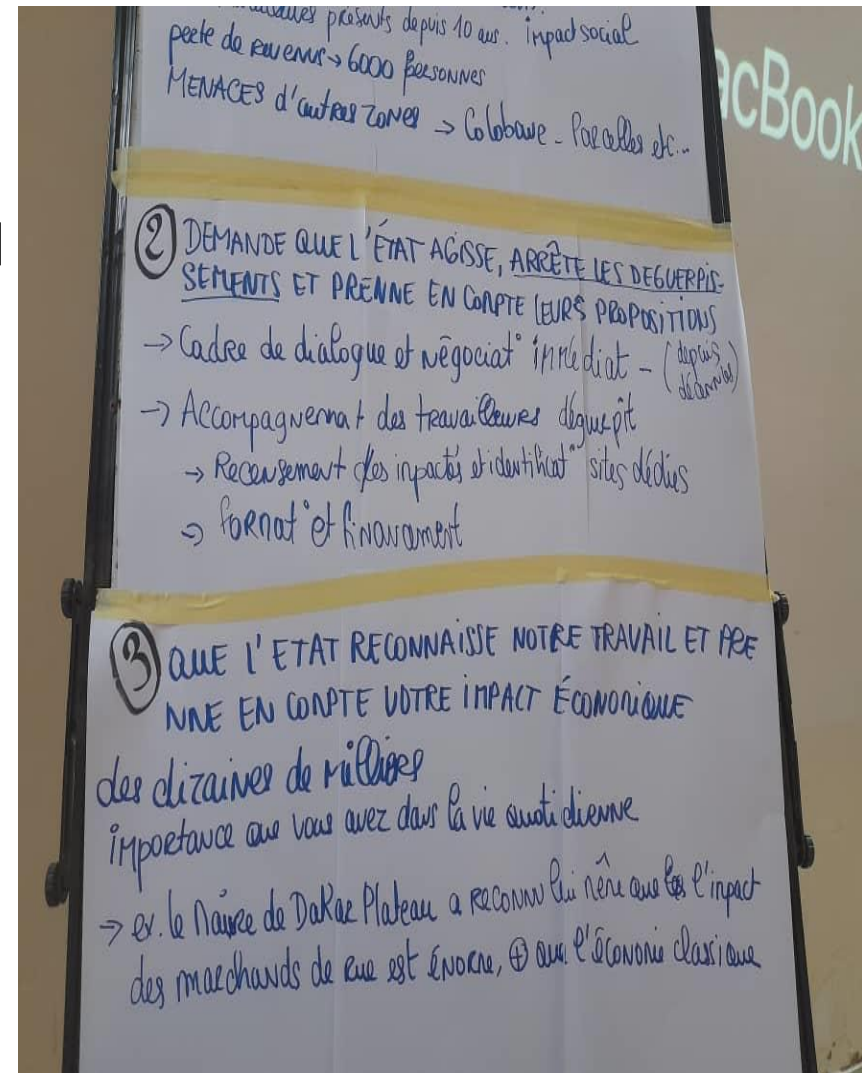 présents depuis 10 ans. impact social
perte de revenus → 6000 personnes
MENACES d'autres zones → Colobane - Parcelles etc...
acBook
② DEMANDE QUE L'ÉTAT AGISSE, ARRÊTE LES DEGUERPIS-
SEMENTS ET PRENNE EN COMPTE LEURS PROPOSITIONS
→ Cadre de dialogue et négociat° immédiat - (depuis
des années)
→ Accompagnement des travailleurs déguerpit
→ Recensement des impactés et identificat° sites dédiés
→ format° et financement
③ QUE L'ETAT RECONNAISSE NOTRE TRAVAIL ET PRE
NNE EN COMPTE VOTRE IMPACT ÉCONOMIQUE
des dizaines de milliers
importance que vous avez dans la vie quotidienne
→ ex. le Maire de Dakar Plateau a reconnu lui même que l'impact
des marchands de rue est énorme, ⊕ que l'économie classique